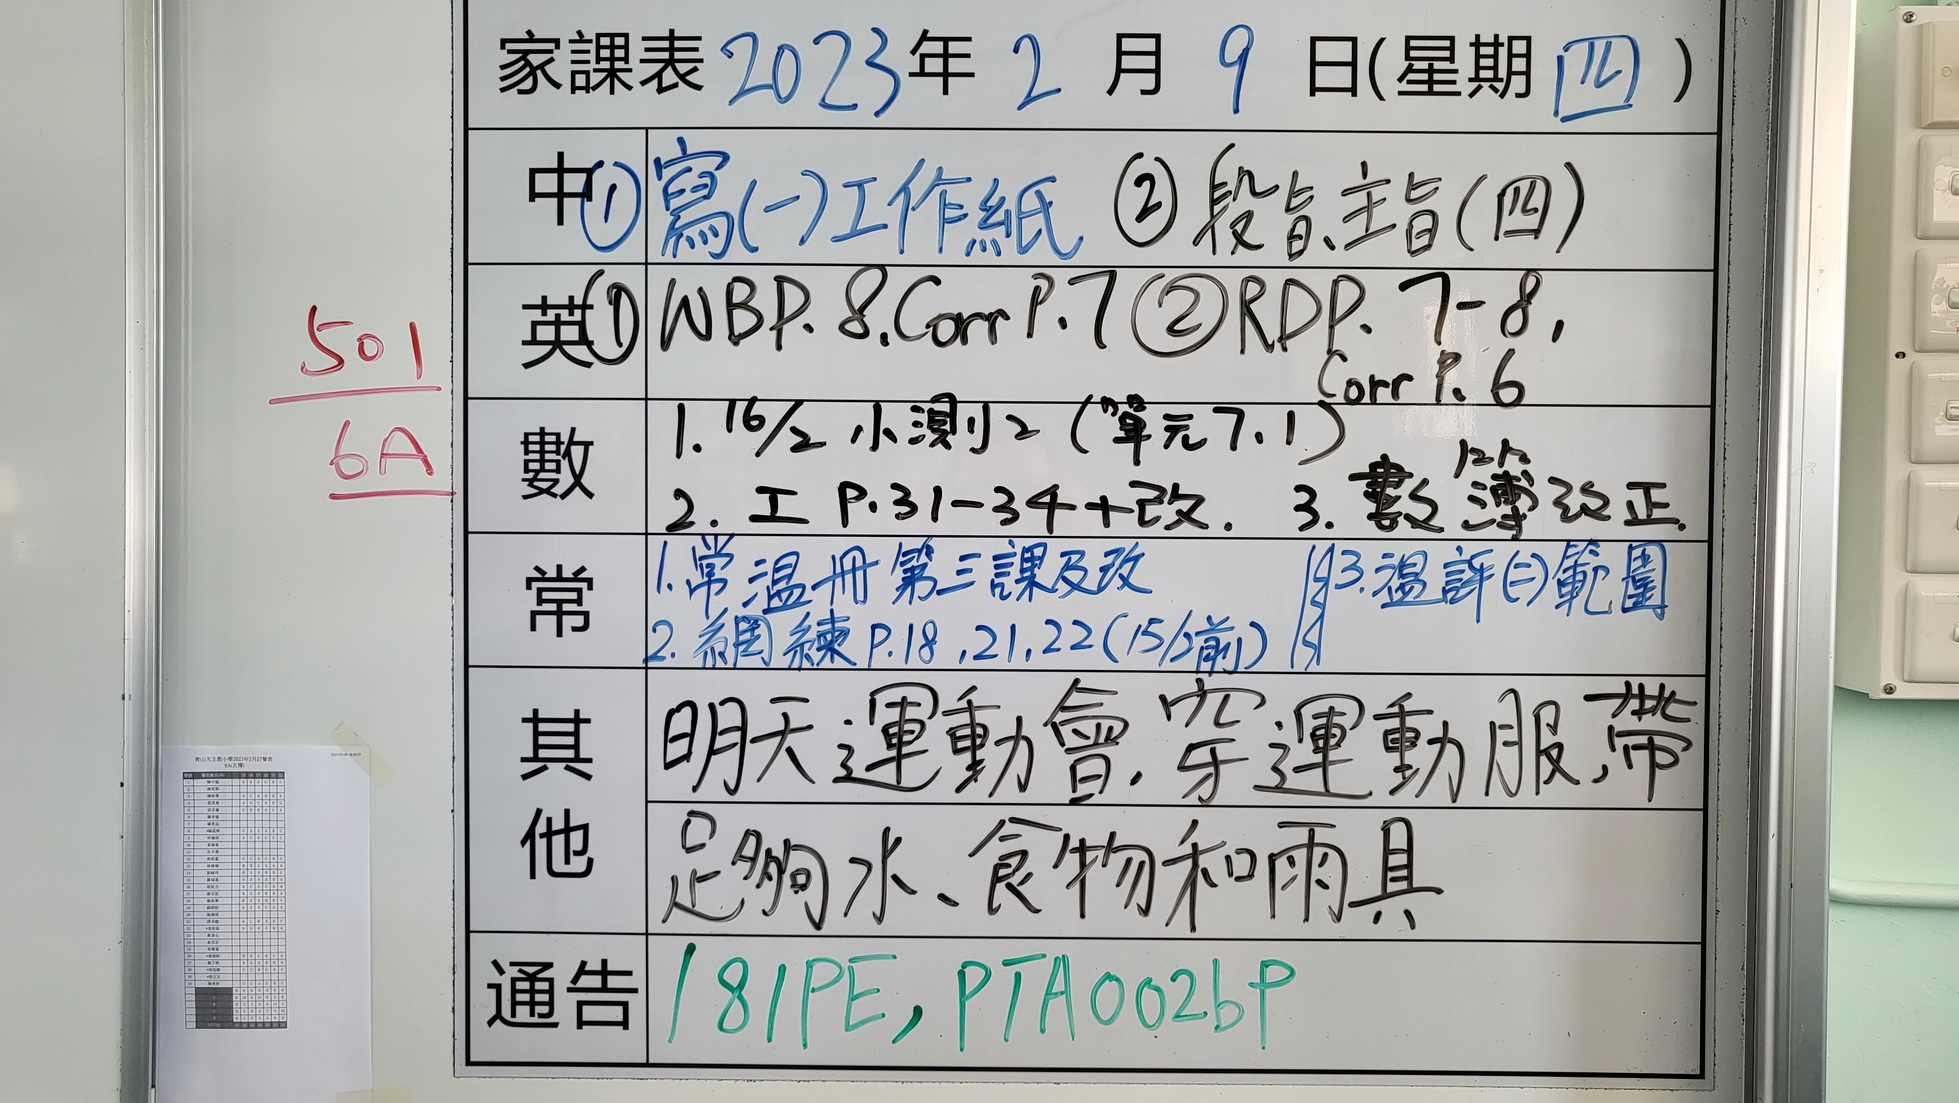 家課表 2023年 2月 9日(星期四)
中 ①寫(一)工作紙 ②段旨、主旨(四)
英 ①WBP.8.Corr P.7 ②RDP.7-8,
Corr P.6
501
6A
數 1. 16/2 小測2 (單元7.1)
2. 工 P.31-34+改. 3. 數簿改正.
常 1.常溫冊第三課及改 3.溫評(二)範圍
2.網練P.18,21,22(15/2前)
其他 明天運動會,穿運動服,帶
足夠水、食物和雨具
通告 181PE, PTA002bP